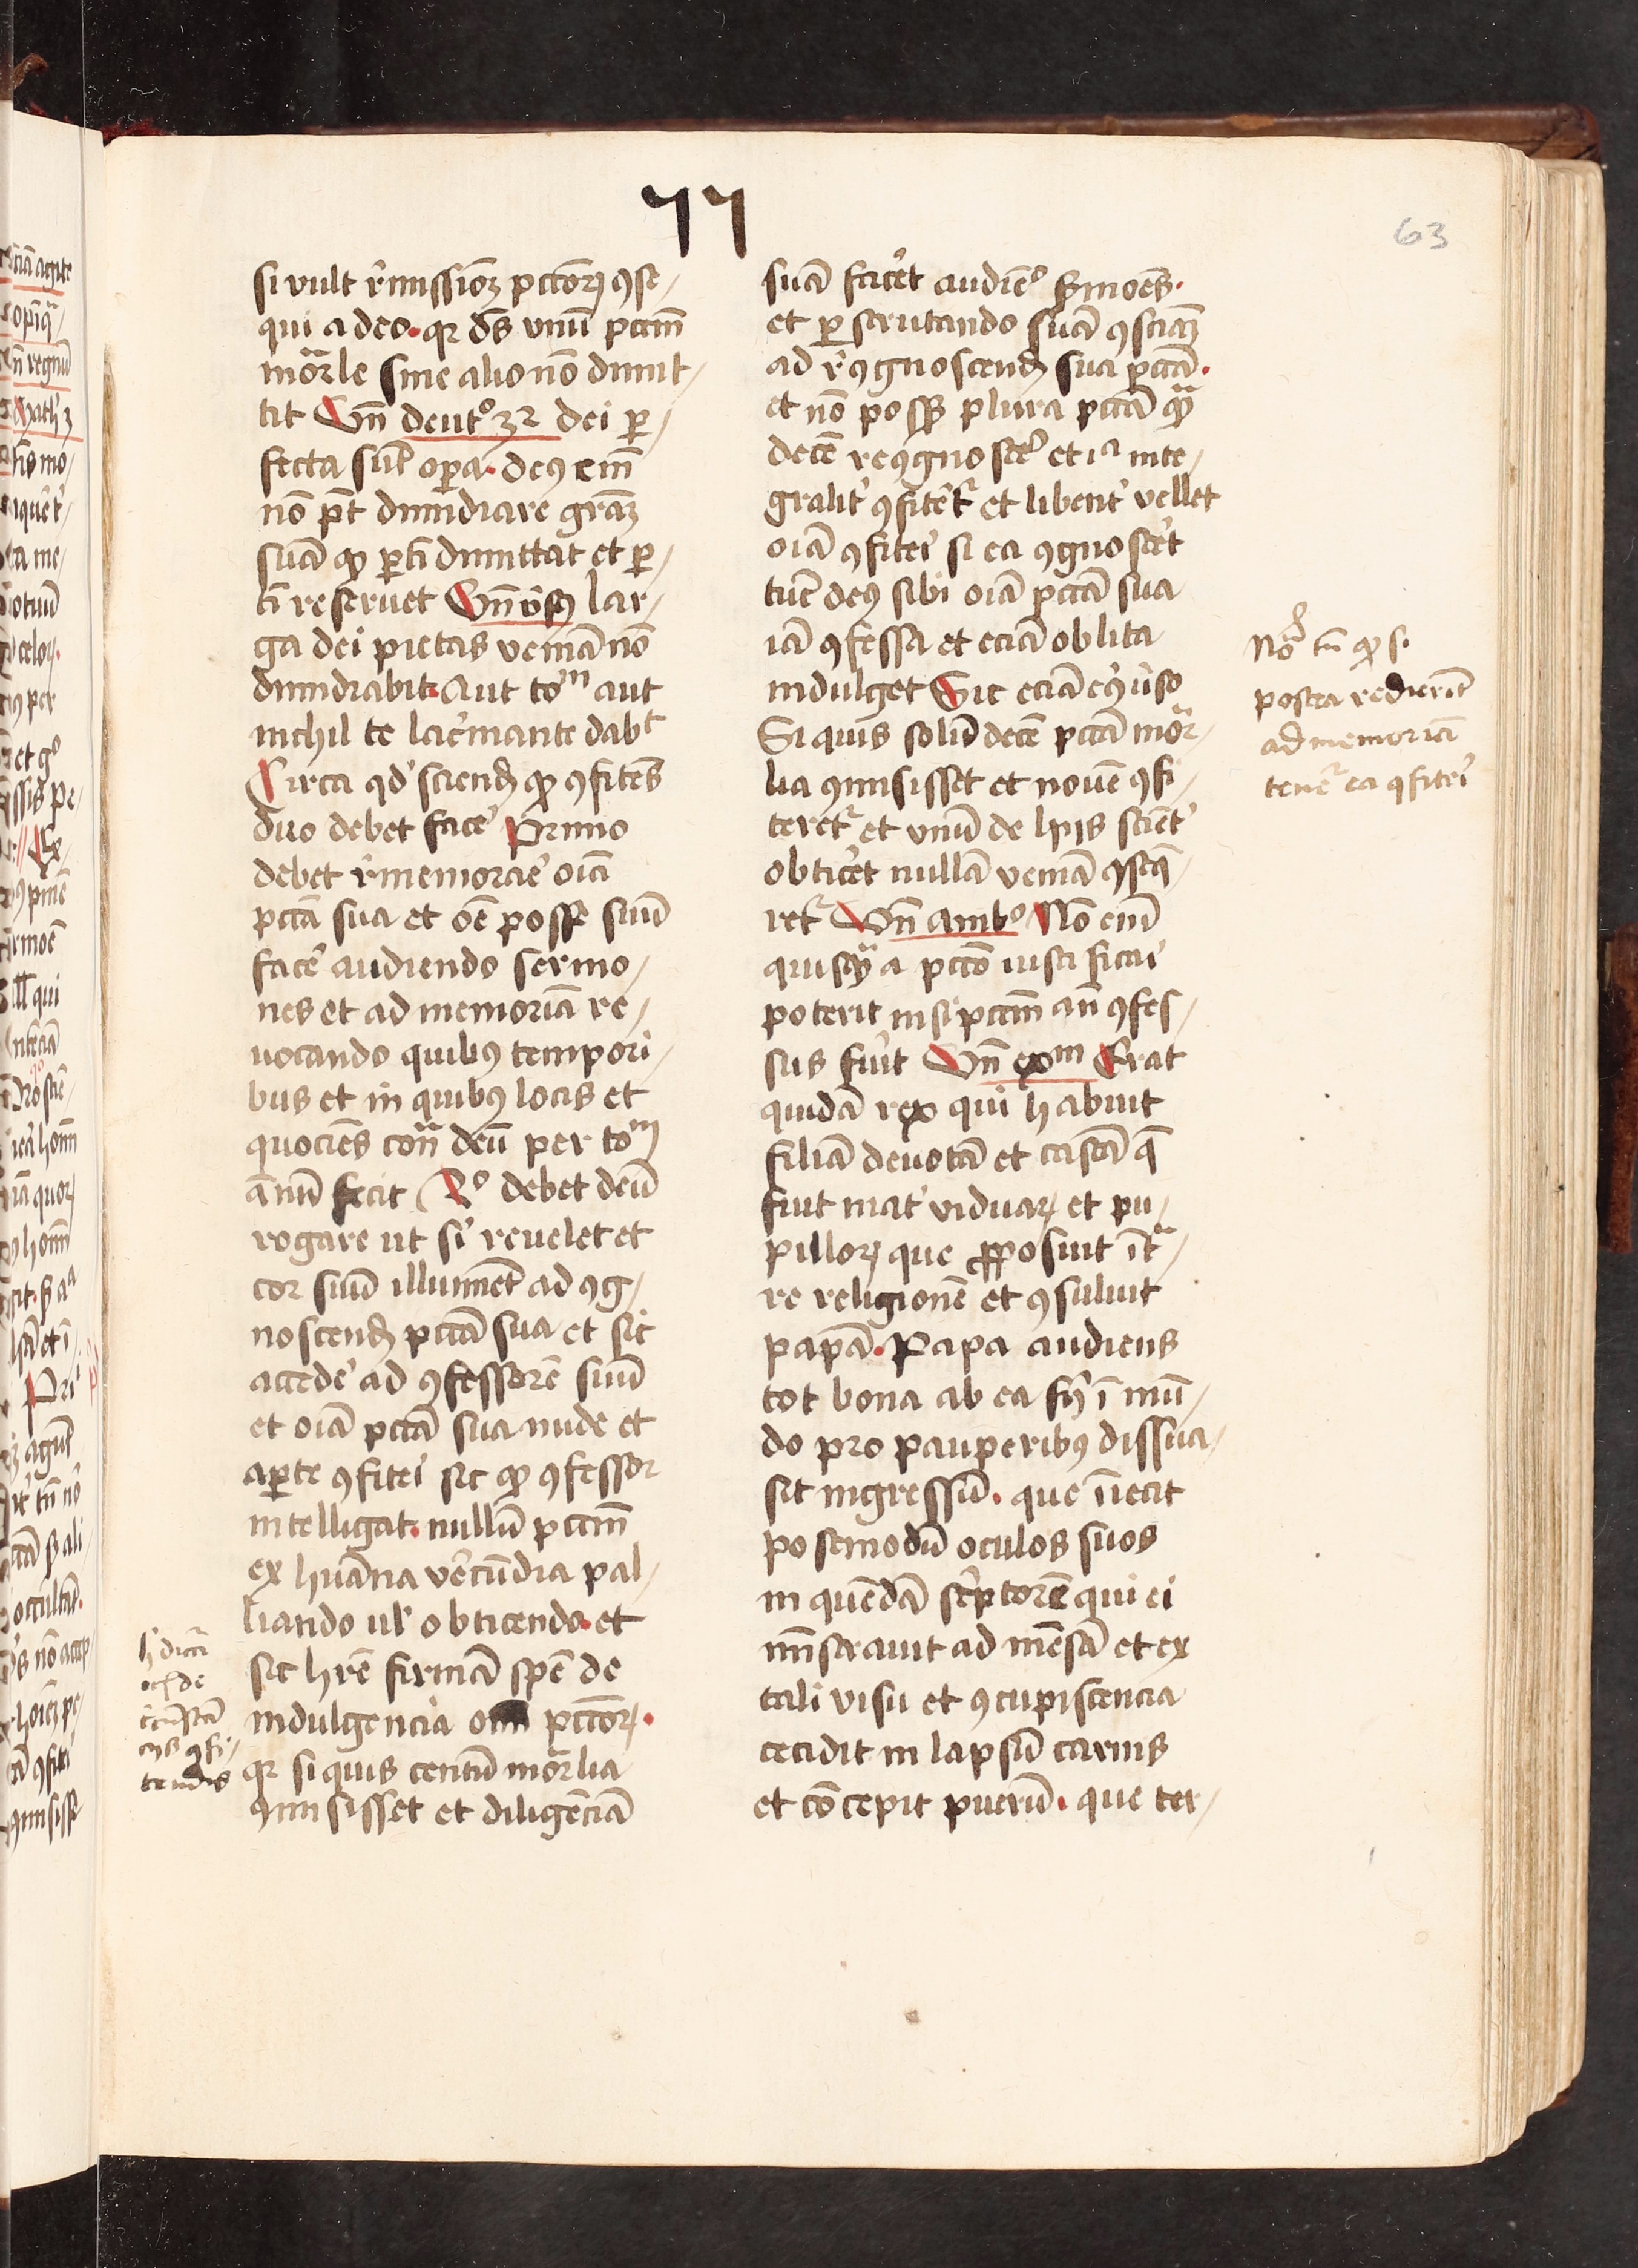 77
63
si vult r̄missionꝫ pcc̄orꝝ ꝯse/
qui a deo. qꝛ dn̄s vnū pccm̄
mor̄le sine alio nō dimit/
tit Vn̄ deut͛º 32 dei ꝑ/
fecta sūt oꝑa. deꝰ em̄
nō pt̄ dimidiare grāꝫ
suā ꝙ ꝑti dimittat et ꝑ/
ti reseruet Vn̄ v̄sꝰ lar/
ga dei pietas veniā nō
dimidiabit. Aut toᵐ aut
nichil te lac͛mante dabᵗ
Circa qd͛ sciendꝫ ꝙ ꝯfitēs
duo debet fac͛e Primo
debet r̄memorāe oīa
pccā sua et oē posse suū
fac͛e audiendo sermo/
nes et ad memoriā re/
uocando quibꝰ tempori/
bus et in quibꝰ locis et
quociēs con̄ deū per toᵐ
annū fecit 2º debet deū
rogare ut si͛ reuelet et
cor suū illuminet ad ꝯg/
noscendꝫ pccā sua et sic
acced͛e ad ꝯfessorē suū
et oīa pccā sua nude et
aꝑte ꝯfit͛ei sic ꝙ ꝯfessor
intelligat. nullū pccm̄
ex huāna v͛ecūdia pal/
liando ul͛ obticendo. et
sic hr̄e firmā spē de
indulgencia oīm pcc̄orꝝ.
qꝛ si quis centū mor̄lia
ꝯmisisset et diligēciā
suā fac͛et audiēº s͛moēs.
et ꝑscrutando suā ꝯsciāꝫ
ad r̄ꝯgnoscendꝫ sua pccā.
et nō possꝫ plura pccā qᵃ̄
decē reꝯgnosc͛e et iᵃ inte/
gralit͛ ꝯfitet͛ et libent͛ vellet
oīa ꝯfit͛ei si ea ꝯgnosc͛et
tūc deꝰ sibi oīa pccā sua
iā ꝯfessa et eciā oblita
indulget Sic eciā eꝯ͛uso
Si quis solū decē pccā mor̄/
lia ꝯmisisset et nouē ꝯfi/
teret͛ et vnū de hijs scient͛
obtic͛et nullā veniā ꝯseq̄/
ret͛ Vn̄ Ambº Nō em̄
quisqᵃ̄ a pccō iustificāi
poterit nisi pccm̄ an̄ ꝯfes/
sus fu͛it Vn̄ exᵐ Erat
quidā rex qui habuit
filiā deuotā et castā q̄
fuit mat͛ viduarꝝ et pu/
pillorꝝ que ꝓposuit īt͛ᵃ/
re religionē et ꝯsuluit
papā. Papa audiens
tot bona ab ea f͛i ī mū/
do pro pauperibꝰ dissua/
sit ingressū. que īiecit
postmodū oculos suos
in quēdā sc͛iptorē qui ei
mīs͛tauit ad mēsā et ex
tali visu et ꝯcupiscencia
cecidit in lapsū carnis
et cōcepit puerū. que ter/
tn̄ ꝙ si
postea redierīt
ad memoriā
tenet͛ ea ꝯfit͛ei
h͛ dicta
de
ꝯfi/
tendis